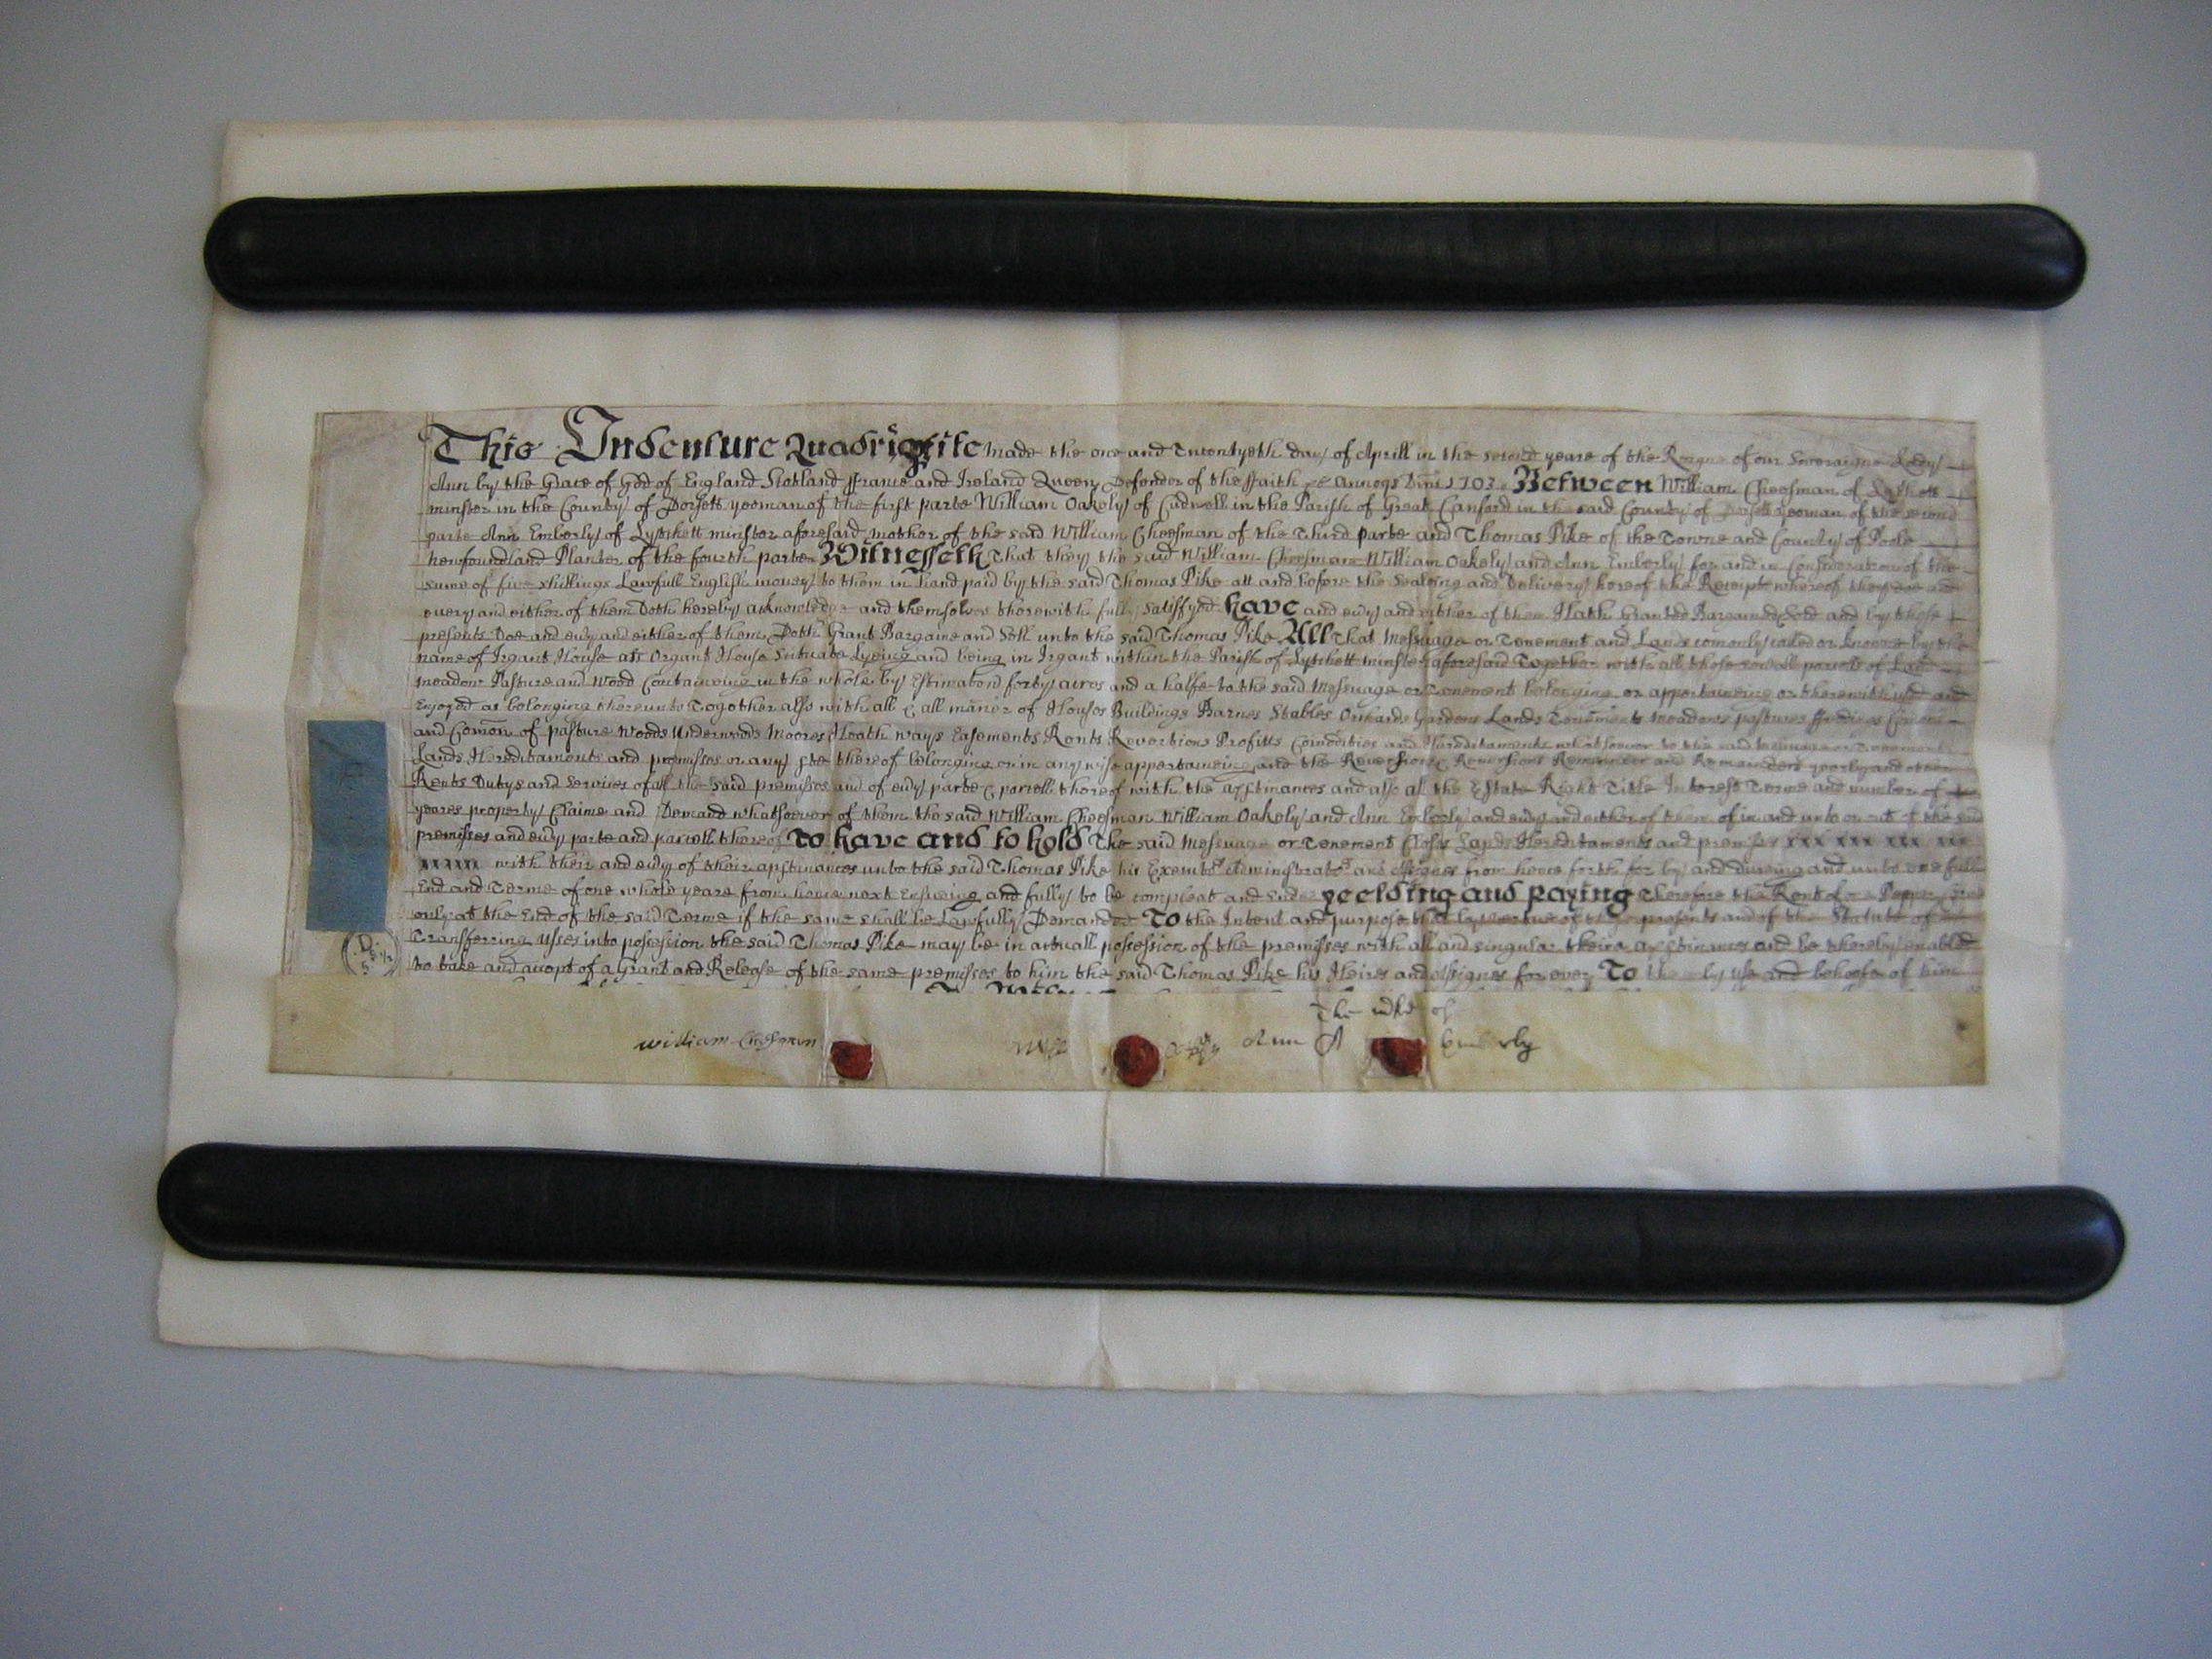 This Indenture Quadripite made the one and Twentyeth day of Aprill in the second yeare of the Reigne of our Soveraigne Lady
Ann by the Grace of God of England Scotland ffrance and Ireland Queen Defender of the ffaith &c Annoqs Dni 1703 Between William Cheesman of Lytchett
minster in the County of Dorsett yeoman of the first parte William Oakely of Cudnell in the Parish of Great Canford in the said County of Dorsett yeoman of the second
parte Ann Emberly of Lytchett minster aforesaid mother of the said William Cheesman of the Third parte and Thomas Pike of the Towne and County of Poole
newfoundland Planter of the fourth parte Witnesseth That they the said William Cheesman William Oakely and Ann Emberly for and in Consideration of the
sume of five shillings Lawfull English money to them in hand paid by the said Thomas Pike att and before the Sealeing and Delivery hereof the Receipt whereof they doe and
every and either of them Doth hereby acknowledge and themselves therewith fully satisfyed have and evy and either of them Hath Granted Bargained Sold and by these
presents Doe and evy and either of them Doth Grant Bargaine and Sell unto the said Thomas Pike All that Messuage or Tenement and Lands comonly called or knowne by the
name of Irgant House als Organt House Scituate Lyeing and being in Irgant within the Parish of Lytchett minster aforesaid Together with all those severall parcells of Land
meadow Pasture and Wood Containeing in the whole by Estimation forty acres and a halfe to the said Messuage or Tenement belonging or appertaineing or therewith used and
Enjoyed as belonging thereunto Together also with all & all maner of Houses Buildings Barnes Stables Orchards Gardens Lands Tenements meadows pastures ffeedings Comons
and Comon of pasture Woods Underwoods Moores Heath ways Easements Rents Revertions Profitts Comodities and Hereditaments whatsoever to the said Messuage or Tenement
Lands Hereditaments and premisses or any pte thereof belonging or in any wise appertaineing and the Revertion & Revertions Remainder and Remainders yearly and other
Rents Dutys and Services of all the said premisses and of evy parte & parcell thereof with the apptinances and also all the Estate Right Title Interest Terme and number of
yeares property Claime and Demand whatsoever of them the said William Cheesman William Oakely and Ann Emberly and evy and either of them of in and unto or out of the said
premisses and evy parte and parcell thereof To have and to hold The said Messuage or Tenement Closes Lands Hereditaments and premisses xxx xxx xxx xxx
xxxxx with their and evy of their apptinances unto the said Thomas Pike his Executrs Administratrs and Assignes from henceforth for by and dureing and unto one full
End and Terme of one whole yeare from hence next Ensueing and fully to be compleat and Ended yeelding and paying Therefore the Rent of one Pepper Corne
only at the End of the said Terme if the same shall be Lawfully Demanded To the Intent and purpose that by vertue of these presents and of the Statute of
Transferring usses into possession the said Thomas Pike may be in actuall possession of the premisses with all and singular theire apptinances and be thereby enabled
to take and accept of a Grant and Release of the same premisses to him the said Thomas Pike his Heires and Assignes for ever To the only use and behoofe of him
The mke of
william Cheesman Ann A Emberly